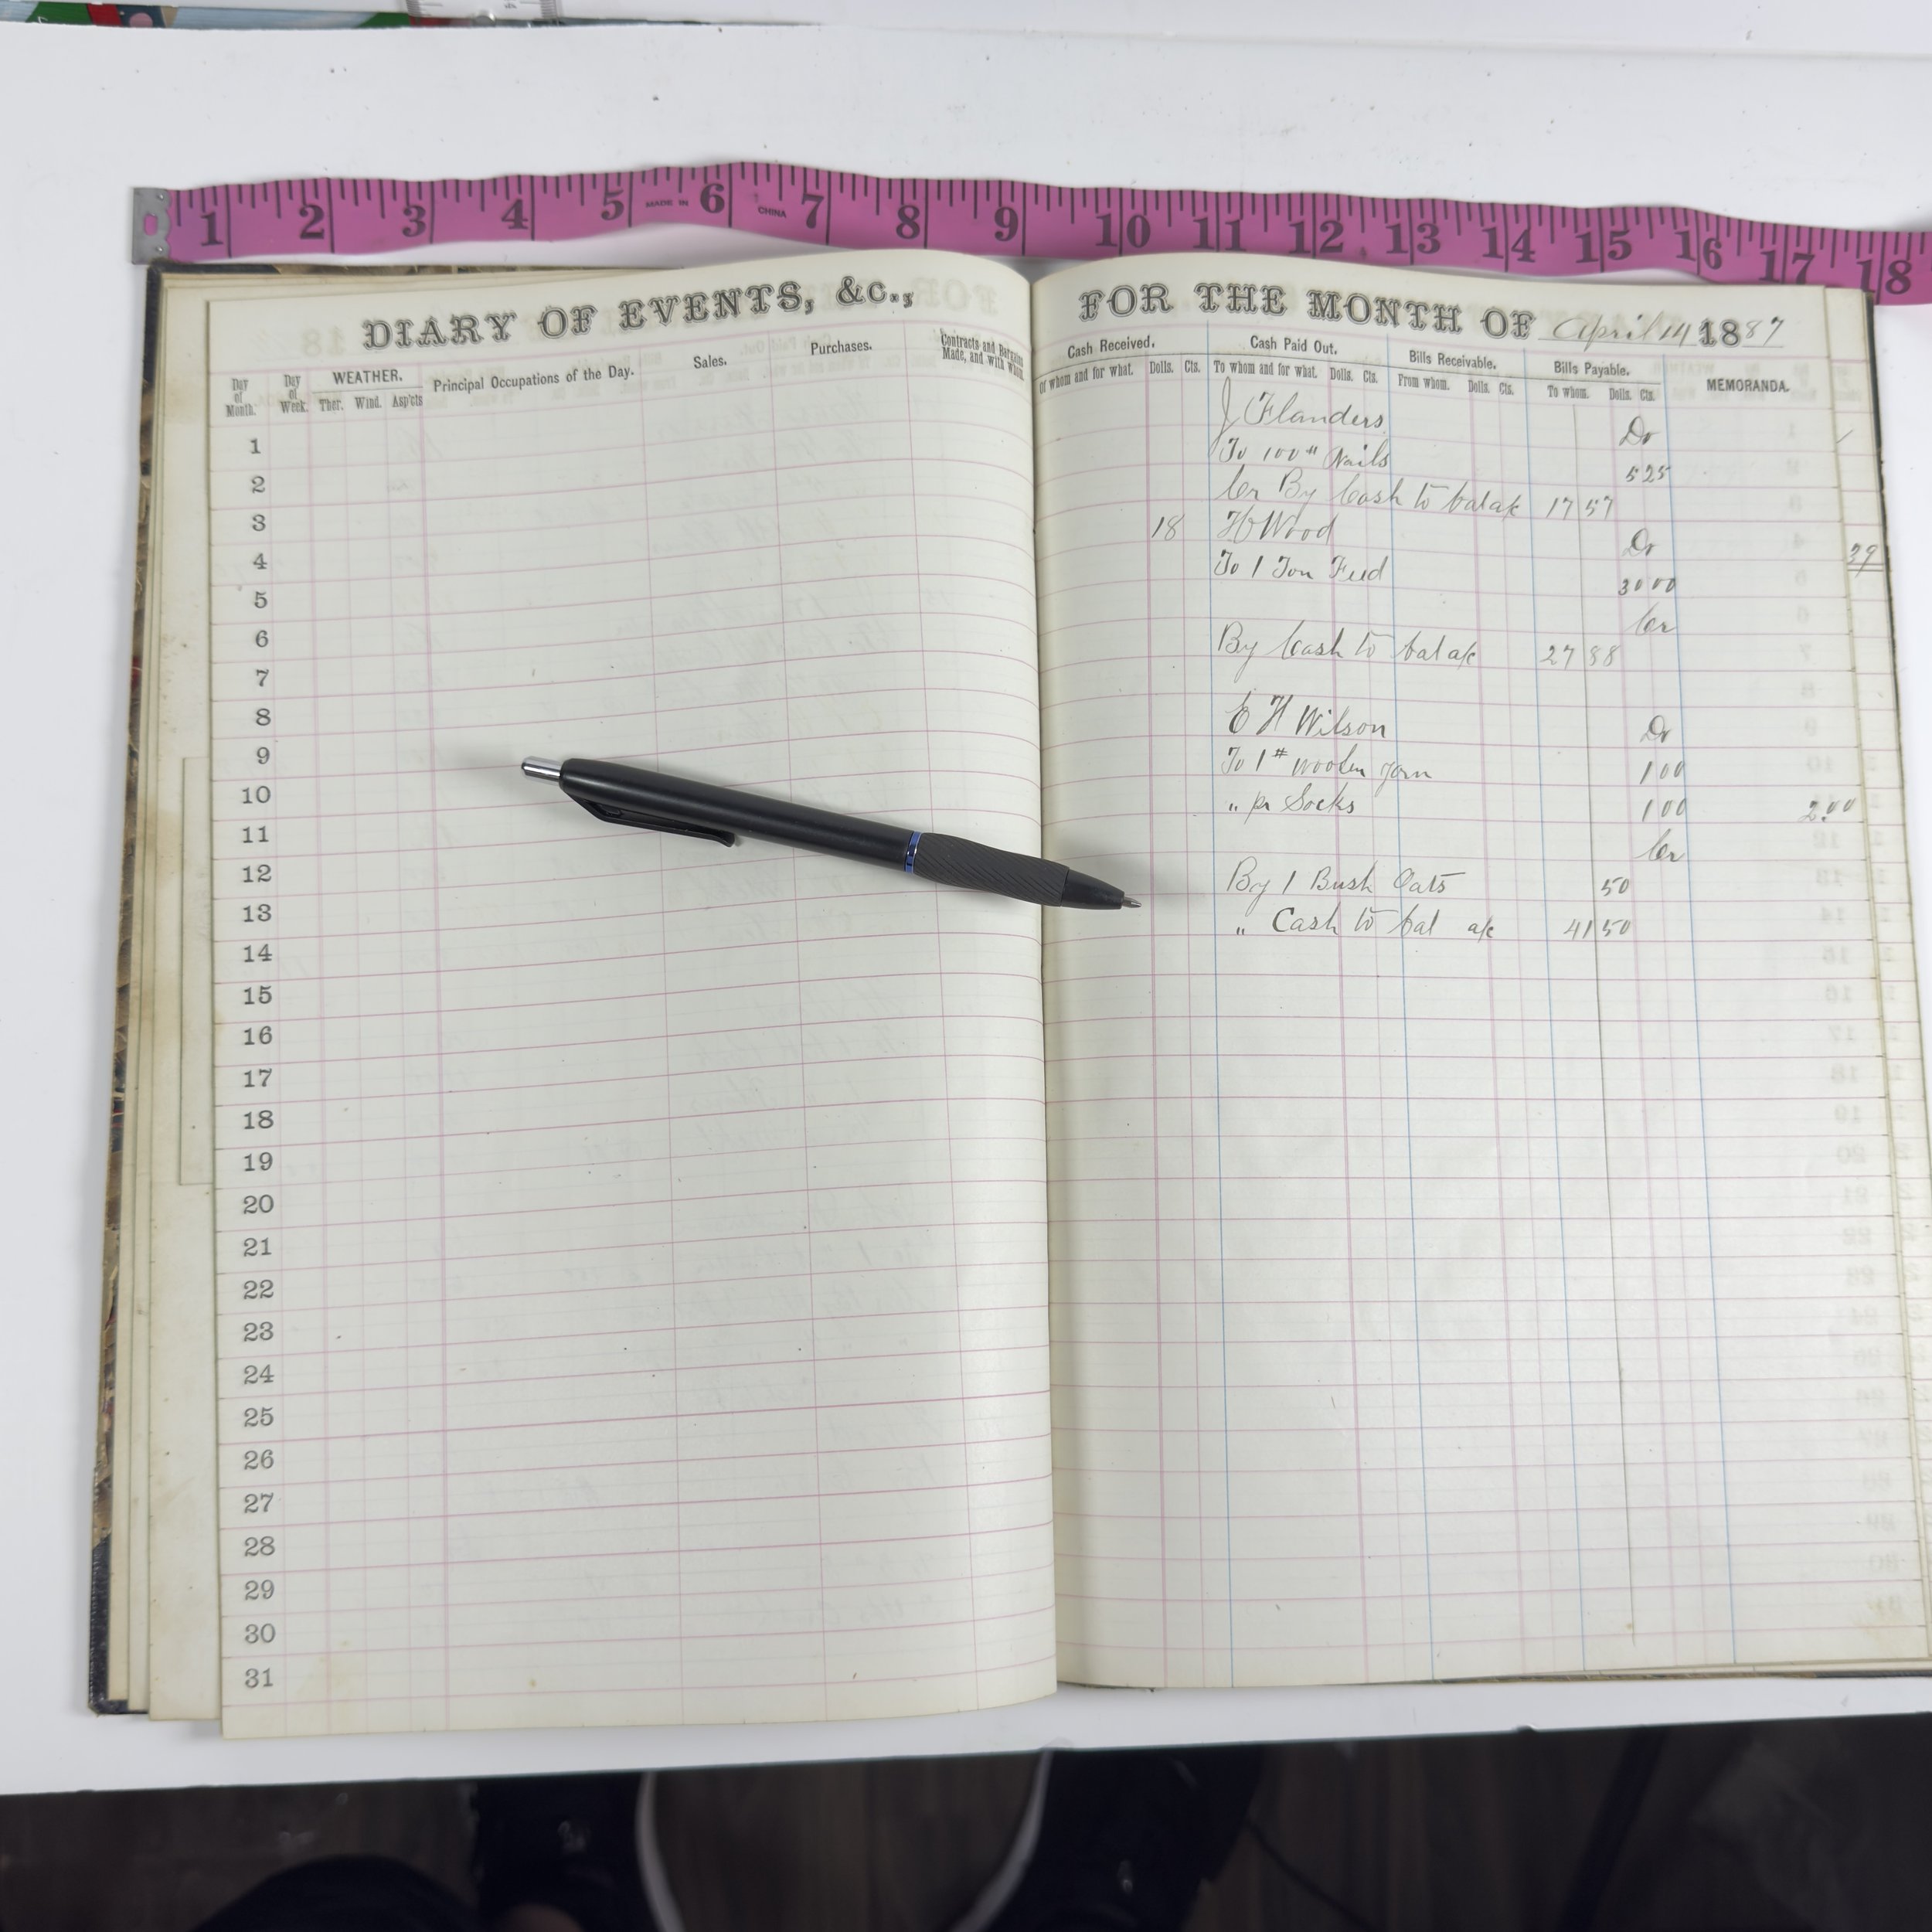 1 2 3 4 5 6 7 8 9 10 11 12 13 14 15 16 17 18
MADE IN CHINA
DIARY OF EVENTS, &c.,
Day of Month.
Day of Week.
WEATHER.
Ther. Wind. Asp'cts
Principal Occupations of the Day.
Sales.
Purchases.
Contracts and Bargains Made, and with Whom.
1
2
3
4
5
6
7
8
9
10
11
12
13
14
15
16
17
18
19
20
21
22
23
24
25
26
27
28
29
30
31
FOR THE MONTH OF April 14 1887
Cash Received. Cash Paid Out. Bills Receivable. Bills Payable. MEMORANDA.
Of whom and for what. Dolls. Cts. To whom and for what. Dolls. Cts. From whom. Dolls. Cts. To whom. Dolls. Cts.
J Flanders Dr
To 100 # Nails 5 25
Cr By Cash to bal a/c 17 57
18 H Wood Dr
39
To 1 Ton Feed 30 00
Cr
By Cash to bal a/c 27 88
E H Wilson Dr
To 1 # woolen yarn 1 00
" pr Socks 1 00 2.00
Cr
By 1 Bush Oats 50
" Cash to bal a/c 41 50